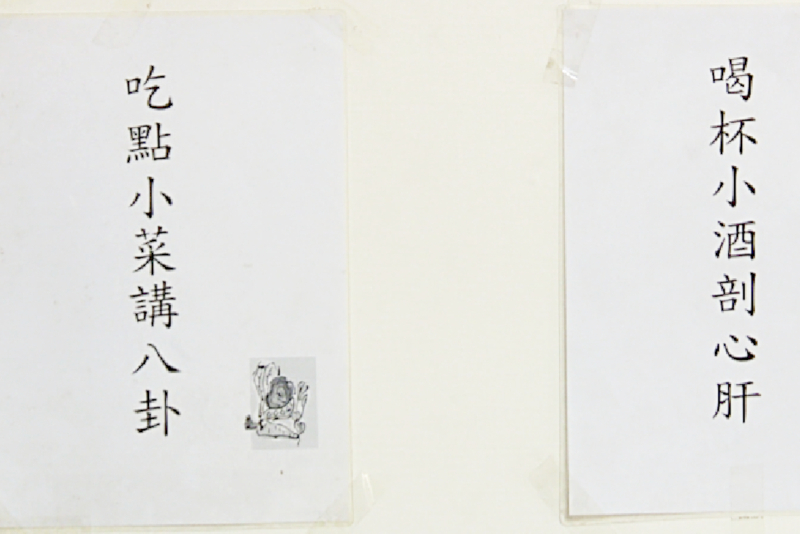 喝杯小酒剖心肝
吃點小菜講八卦